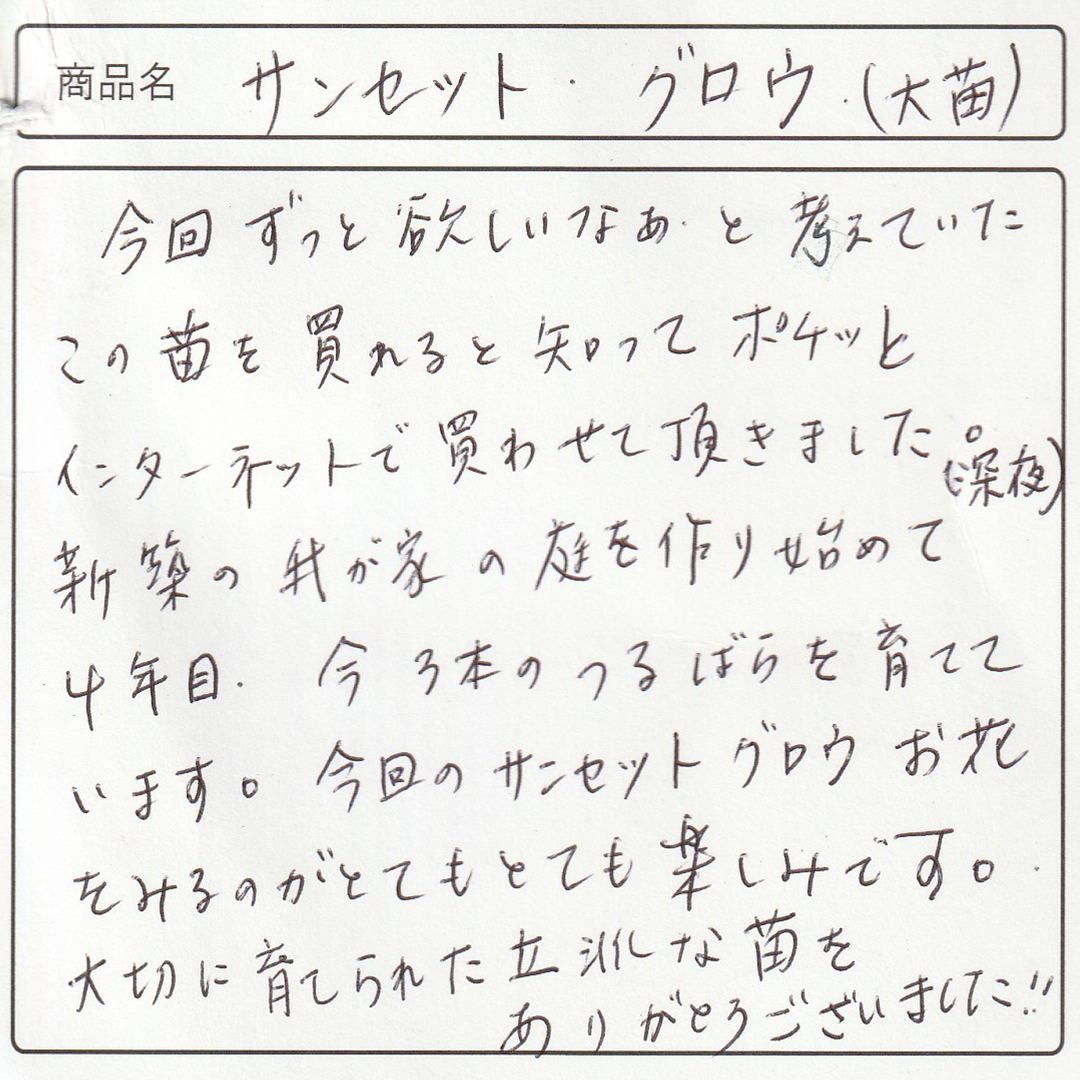 商品名 サンセット・グロウ.(大苗)
今回 ずっと欲しいなぁ.と考えていた
この苗を買れると知ってポチッと
インターネットで買わせて頂きました。
(深夜)
新築の我が家の庭を作り始めて
4年目. 今3本のつるばらを育てて
います。今回のサンセットグロウお花
をみるのがとてもとても楽しみです。
大切に育てられた立派な苗を
ありがとうございました!!